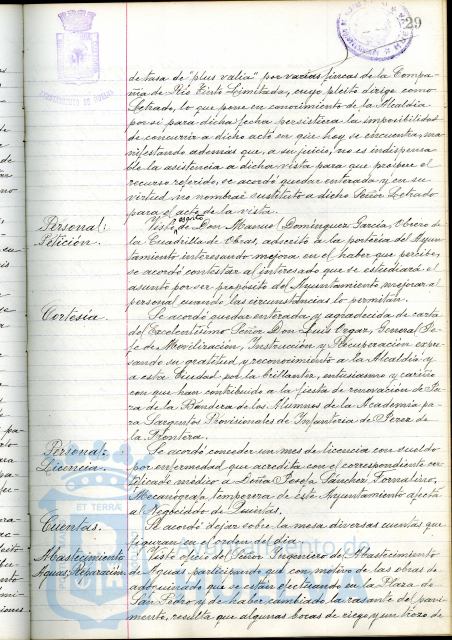 29
AYUNTAMIENTO DE HUELVA
de tasa de "plus valia" por varias fincas de la Compa-
ñia de Rio Tinto Limitada, cuyo pleito dirige como
Letrado, lo que pone en conocimiento de la Alcaldia
por si para dicha fecha persistiera la imposibilidad
de concurrir a dicho acto en que hoy se encuentra, ma-
nifestando además que, a su juicio, no es indispensa-
ble la asistencia a dicha vista para que prospere el
recurso referido, se acordó quedar enterada y en su
virtud no nombrar sustituto a dicho Señor Letrado
para el acto de la vista.
Personal:
Petición.
Visto escrito de Don Manuel Dominguez García, Obrero de
la Cuadrilla de Obras, adscrito á la porteria del Ayun-
tamiento interesando mejora en el haber que percibe,
se acordó contestar al interesado que se estudiará el
asunto por ser propósito del Ayuntamiento mejorar al
personal cuando las circunstancias lo permitan.
Cortesía.
Se acordó quedar enterada y agradecida de carta
del Excelentísimo Señor Don Luis Orgaz, General Je-
fe de Movilización, Instrucción y Recuperación expre-
sando su gratitud y reconocimiento a la Alcaldia y
a esta Ciudad por la brillantez, entusiasmo y cariño
con que han contribuido a la fiesta de renovación de Ju-
ra de la Bandera de los Alumnos de la Academia pa-
ra Sargentos Provisionales de Infantería de Jerez de
la Frontera.
Personal:
Licencia.
Se acordó conceder un mes de licencia con sueldo
por enfermedad que acredita con el correspondiente cer-
tificado médico a Doña Josefa Sanchez Tornalino,
Mecanógrafa temporera de este Ayuntamiento afecta
al Negociado de Quintas.
Cuentas.
Se acordó dejar sobre la mesa diversas cuentas que
figuran en el orden del dia.
Abastecimiento
Aguas, Reparación.
Visto oficio del Señor Ingeniero de Abastecimiento
de Aguas participando que con motivo de las obras de
adoquinado que se están efectuando en la Plaza de
San Pedro y de haber cambiado la rasante del pavi-
mento, resulta que algunas bocas de riego y un trozo de